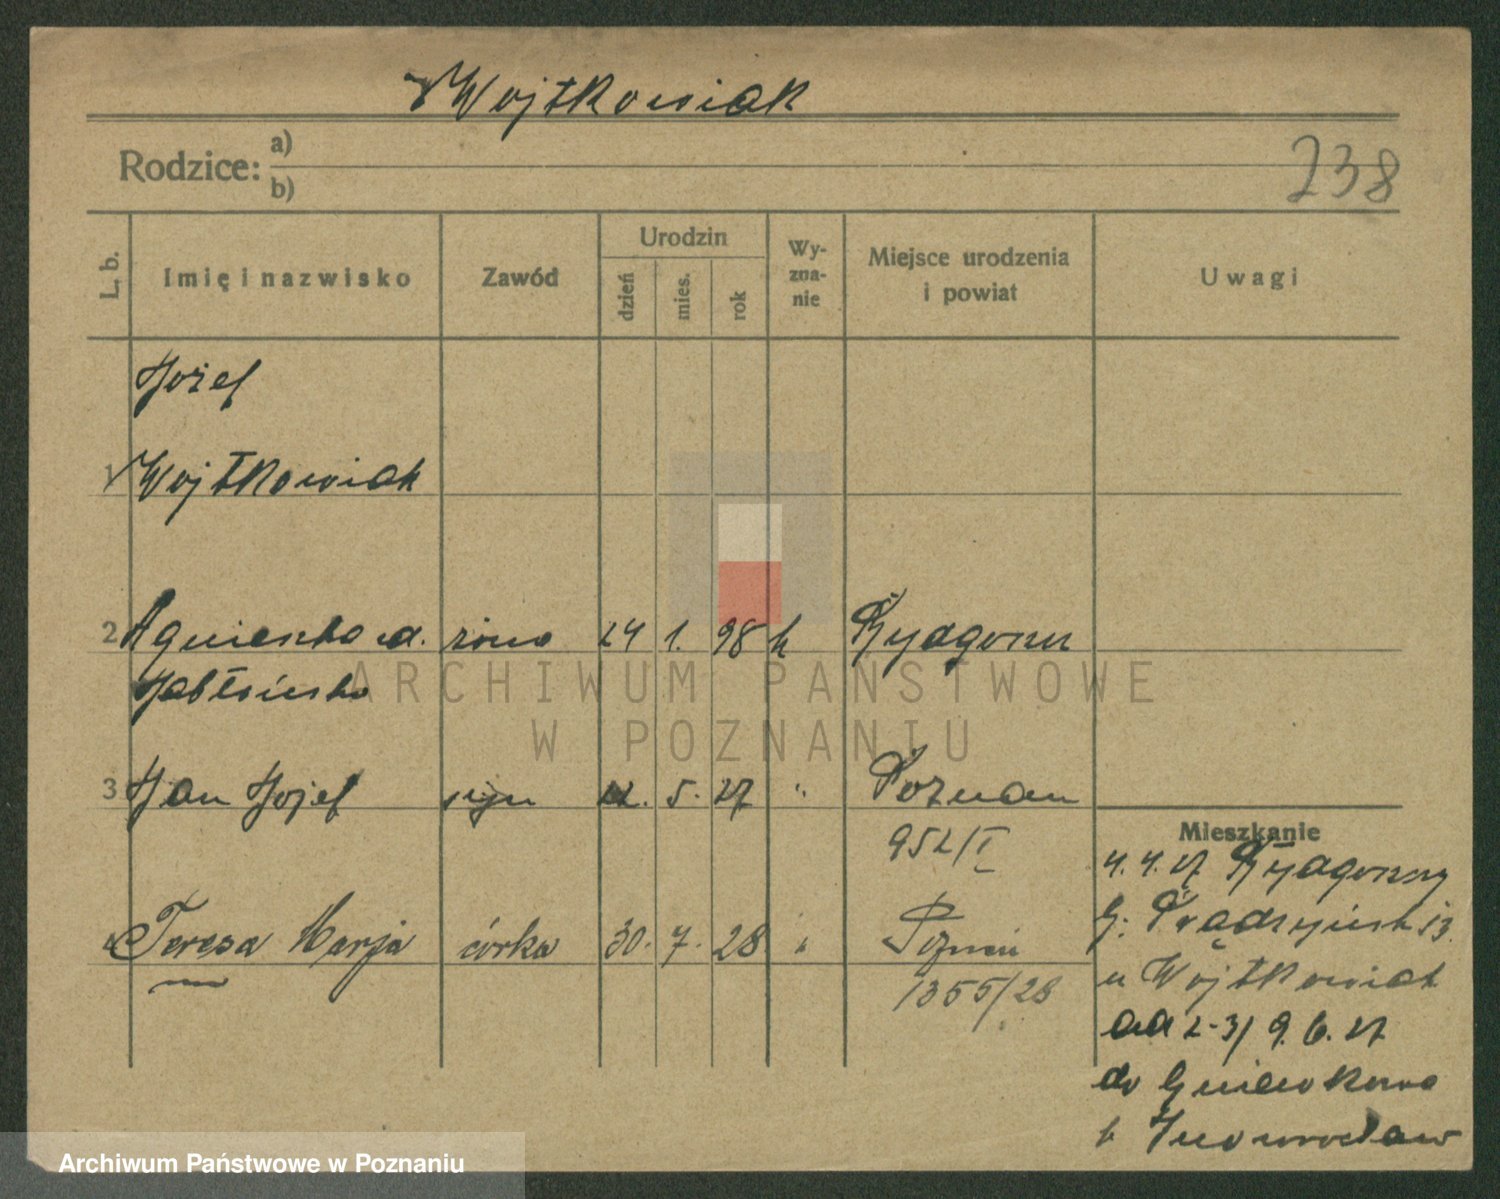 Wojtkowiak
Rodzice: a)
b)
238
L. b.
Imię i nazwisko
Zawód
Urodzin
dzień
mies.
rok
Wy-
zna-
nie
Miejsce urodzenia
i powiat
Uwagi
Józef
1 Wojtkowiak
2 Agnieszka żona 24 1. 98 k Bydgoszcz
Jabłońska
3 Jan Józef syn 5. 27 " Poznań
952/I
4 Teresa Marja córka 30. 7. 28 " Poznań
1355/28
Mieszkanie
4. 4. 27 Bydgoszcz
13.
u Wojtkowiak
ad 2-3/ 9. 6. 27
do Gniewkowa
Inowrocław
ARCHIWUM PAŃSTWOWE
W POZNANIU
Archiwum Państwowe w Poznaniu